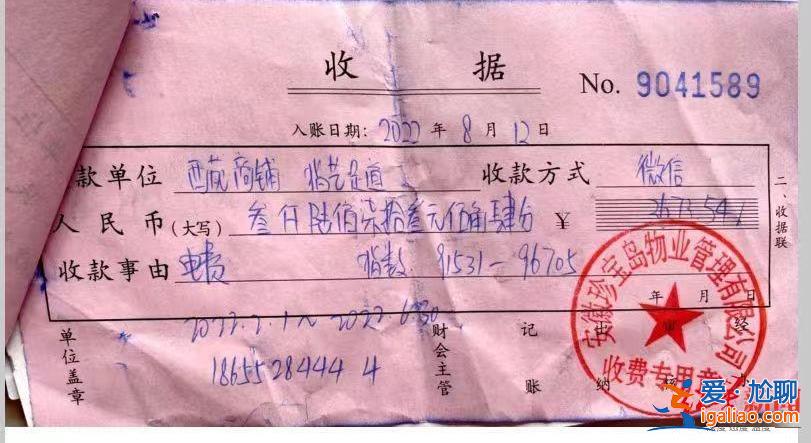 收 据
No. 9041589
入账日期: 2022 年 8 月 12 日
款单位 西苑商铺 指艺足道 收款方式 微信
人民币(大写) 叁仟陆佰柒拾叁元伍角肆分 ¥ 3673.54
收款事由 电费 指数 91531—96705
二、收据联
年 月 日
单位盖章
18655284444
财会主管
记账
出纳
经
安徽珍宝岛物业管理有限公司
收费专用章
爱·尬聊
igaliao.com